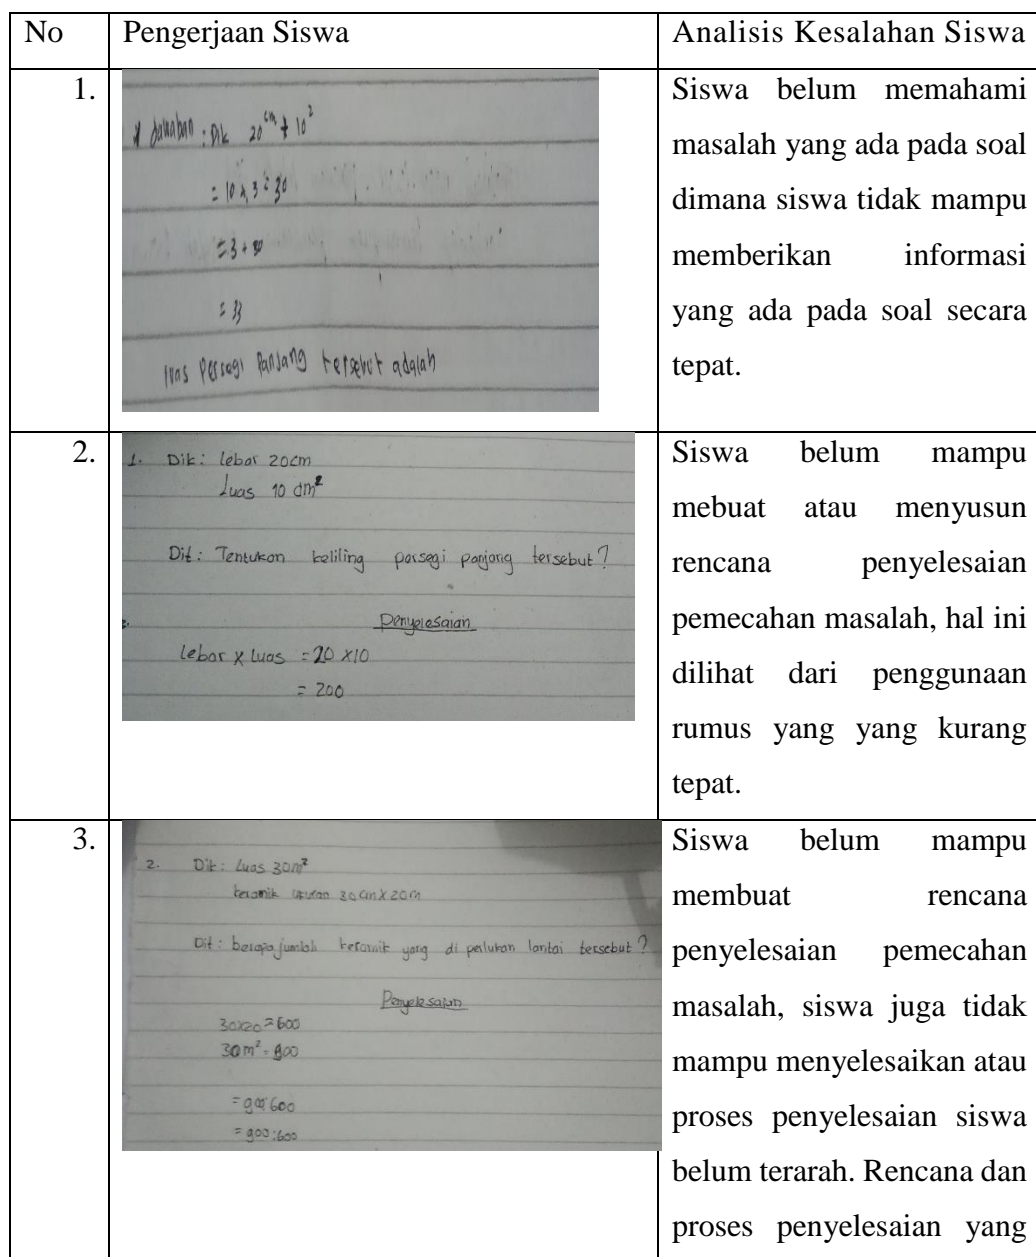 No
Pengerjaan Siswa
Analisis Kesalahan Siswa
1.
Jawaban : Dik 20 cm + 10²
= 10 x 3 = 30
= 3 + 30
= 33
luas Persegi Panjang tersebut adalah
Siswa belum memahami
masalah yang ada pada soal
dimana siswa tidak mampu
memberikan informasi
yang ada pada soal secara
tepat.
2.
1. Dik: lebar 20cm
Luas 10 dm²
Dit: Tentukan keliling persegi panjang tersebut?
Penyelesaian
lebar x luas = 20 x10
= 200
Siswa belum mampu
mebuat atau menyusun
rencana penyelesaian
pemecahan masalah, hal ini
dilihat dari penggunaan
rumus yang yang kurang
tepat.
3.
2. Dik: Luas 30m²
keramik ukuran 30cm x 20m
Dit: berapa jumlah keramik yang di perlukan lantai tersebut?
Penyelesaian
30x20 = 600
30m² = 900
= 900:600
= 900:600
Siswa belum mampu
membuat rencana
penyelesaian pemecahan
masalah, siswa juga tidak
mampu menyelesaikan atau
proses penyelesaian siswa
belum terarah. Rencana dan
proses penyelesaian yang